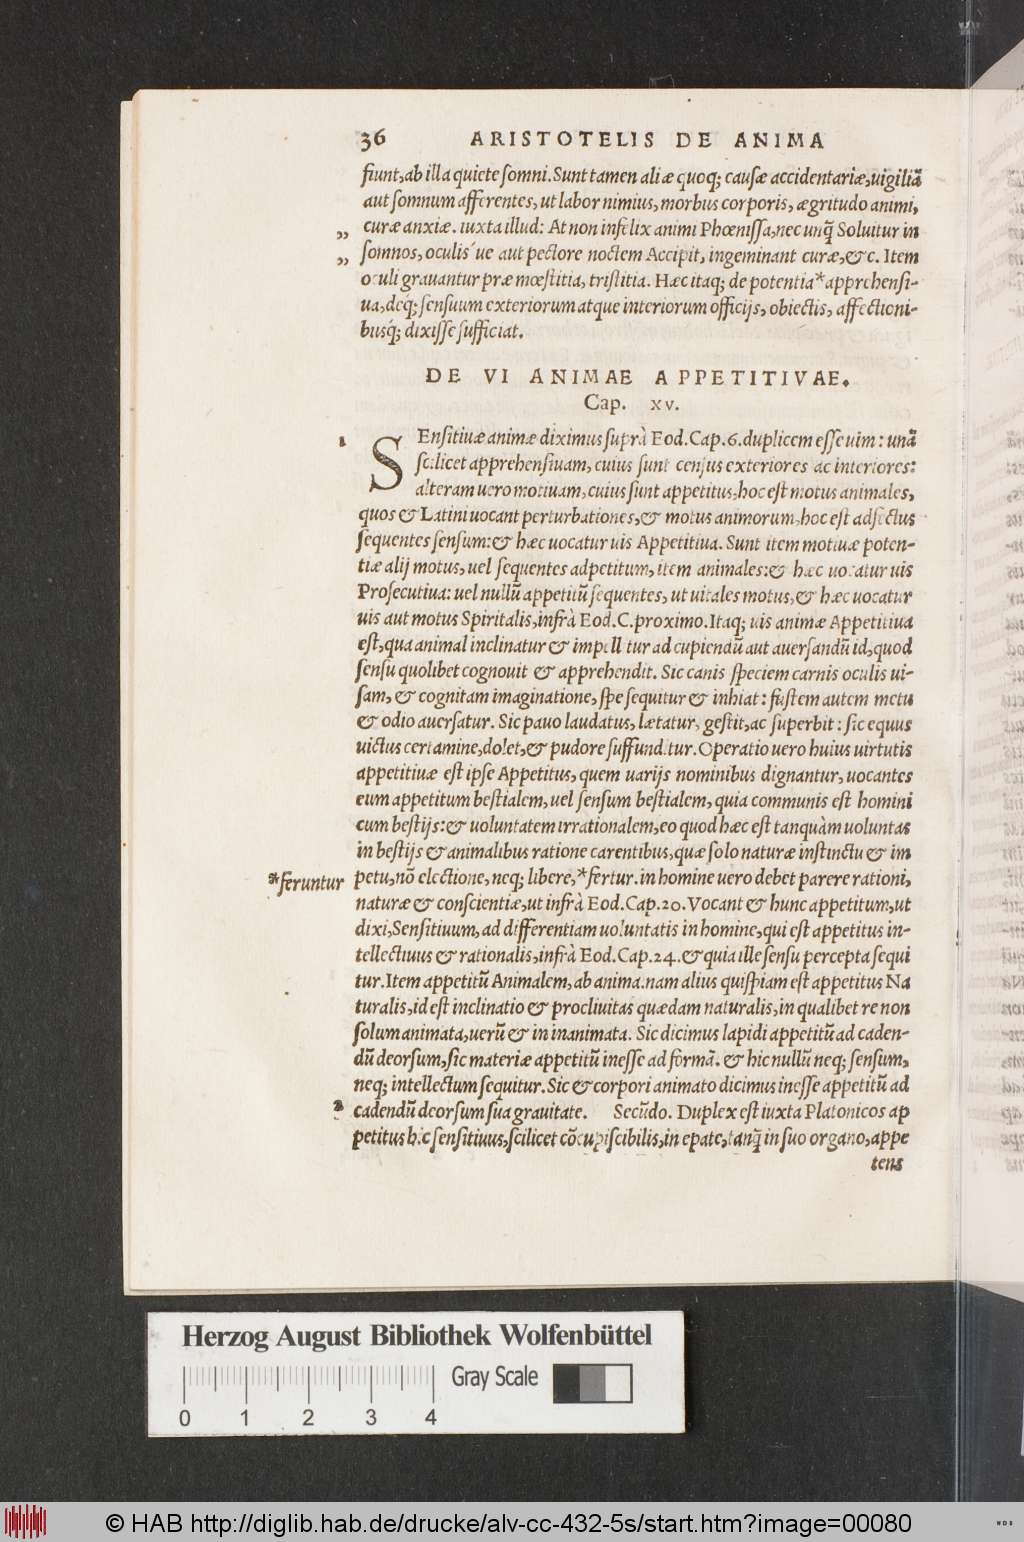 36 ARISTOTELIS DE ANIMA
fiunt, ab illa quiete somni. Sunt tamen aliæ quoq; causæ accidentariæ, uigiliā
aut somnum afferentes, ut labor nimius, morbus corporis, ægritudo animi,
„ curæ anxiæ. iuxta illud: At non infelix animi Phœnissa, nec unq̃ Soluitur in
„ somnos, oculis´ue aut pectore noctem Accipit, ingeminant curæ, &c. Item
oculi grauantur præ mœstitia, tristitia. Hæc itaq; de potentia*apprehensi-
ua, deq; sensuum exteriorum atque interiorum officijs, obiectis, affectioni-
busq; dixisse sufficiat.
DE VI ANIMAE APPETITIVAE.
Cap. XV.
1 SEnsitiuæ animæ diximus suprà Eod. Cap. 6. duplicem esse uim: unā
scilicet apprehensiuam, cuius sunt census exteriores ac interiores:
alteram uero motiuam, cuius sunt appetitus, hoc est motus animales,
quos & Latini uocant perturbationes, & motus animorum, hoc est adfectus
sequentes sensum: & hæc uocatur uis Appetitiua. Sunt item motiuæ poten-
tiæ alij motus, uel sequentes adpetitum, item animales: & hæc uocatur uis
Prosecutiua: uel nullū appetitū sequentes, ut uitales motus, & hæc uocatur
uis aut motus Spiritalis, infrà Eod. C. proximo. Itaq; uis animæ Appetitiua
est, qua animal inclinatur & impellitur ad cupiendū aut auersandū id, quod
sensu quolibet cognouit & apprehendit. Sic canis speciem carnis oculis ui-
sam, & cognitam imaginatione, spe sequitur & inhiat: fustem autem metu
& odio auersatur. Sic pauo laudatus, lætatur, gestit, ac superbit: sic equus
uictus certamine, dolet, & pudore suffunditur. Operatio uero huius uirtutis
appetitiuæ est ipse Appetitus, quem uarijs nominibus dignantur, uocantes
eum appetitum bestialem, uel sensum bestialem, quia communis est homini
cum bestijs: & uoluntatem irrationalem, eo quod hæc est tanquàm uoluntas
in bestijs & animalibus ratione carentibus, quæ solo naturæ instinctu & im
*feruntur petu, nō electione, neq; libere, *fertur. in homine uero debet parere rationi,
naturæ & conscientiæ, ut infrà Eod. Cap. 20. Vocant & hunc appetitum, ut
dixi, Sensitiuum, ad differentiam uoluntatis in homine, qui est appetitus in-
tellectiuus & rationalis, infrà Eod. Cap. 24. & quia ille sensu percepta sequi
tur. Item appetitū Animalem, ab anima. nam alius quispiam est appetitus Na
turalis, id est inclinatio & procliuitas quædam naturalis, in qualibet re non
solum animata, uerū & in inanimata. Sic dicimus lapidi appetitū ad caden-
dū deorsum, sic materiæ appetitū inesse ad formā. & hic nullū neq; sensum,
neq; intellectum sequitur. Sic & corpori animato dicimus inesse appetitū ad
2 cadendū deorsum sua grauitate. Secūdo. Duplex est iuxta Platonicos ap
petitus hic sensitiuus, scilicet cōcupiscibilis, in epate, tanq̃ in suo organo, appe
tens
Herzog August Bibliothek Wolfenbüttel
Gray Scale
0 1 2 3 4
© HAB http://diglib.hab.de/drucke/alv-cc-432-5s/start.htm?image=00080